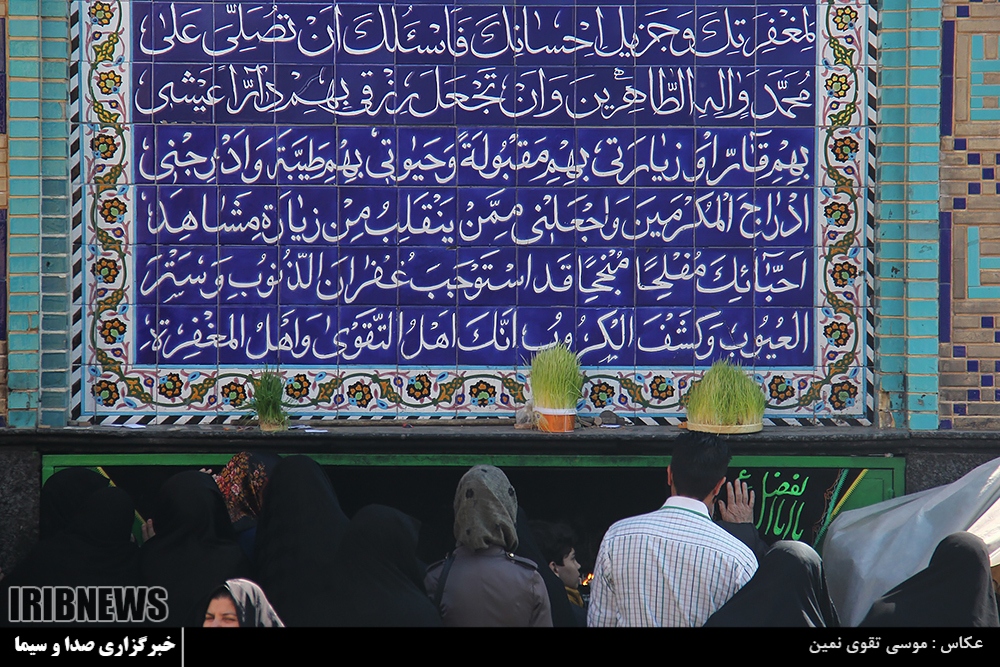 لِمَغْفِرَتِكَ وَجَزِيلِ اِحْسَانِكَ فَاَسْئَلُكَ اَنْ تُصَلِّىَ عَلَى
مُحَمَّدٍ وَالِهِ الطَّاهِرِينَ وَاَنْ تَجْعَلَ رِزْقِى بِهِمْ دَارًّا عَيْشِى
بِهِمْ قَآرًّا وَ زِيارَتِى بِهِمْ مَقْبُولَةً وَحَيوتِى بِهِمْ طَيِّبَةً وَاَدْرِجْنِى
اِدْرَاجَ الْمُكْرَمِينَ وَاجْعَلْنِى مِمَّنْ يَنْقَلِبُ مِنْ زِيَارَةِ مَشَاهِدِ
اَحِبَّآئِكَ مُفْلِحًا مُنْجِحًا قَدِ اسْتَوْجَبَ غُفْرَانَ الذُّنُوبِ وَسَتْرَ
الْعُيُوبِ وَكَشْفَ الْكُرُوبِ اِنَّكَ اَهْلُ التَّقْوَى وَاَهْلُ الْمَغْفِرَةِ
یا اباالفضل ع
IRIBNEWS
خبرگزاری صدا و سیما
عکاس : موسی تقوی نمین